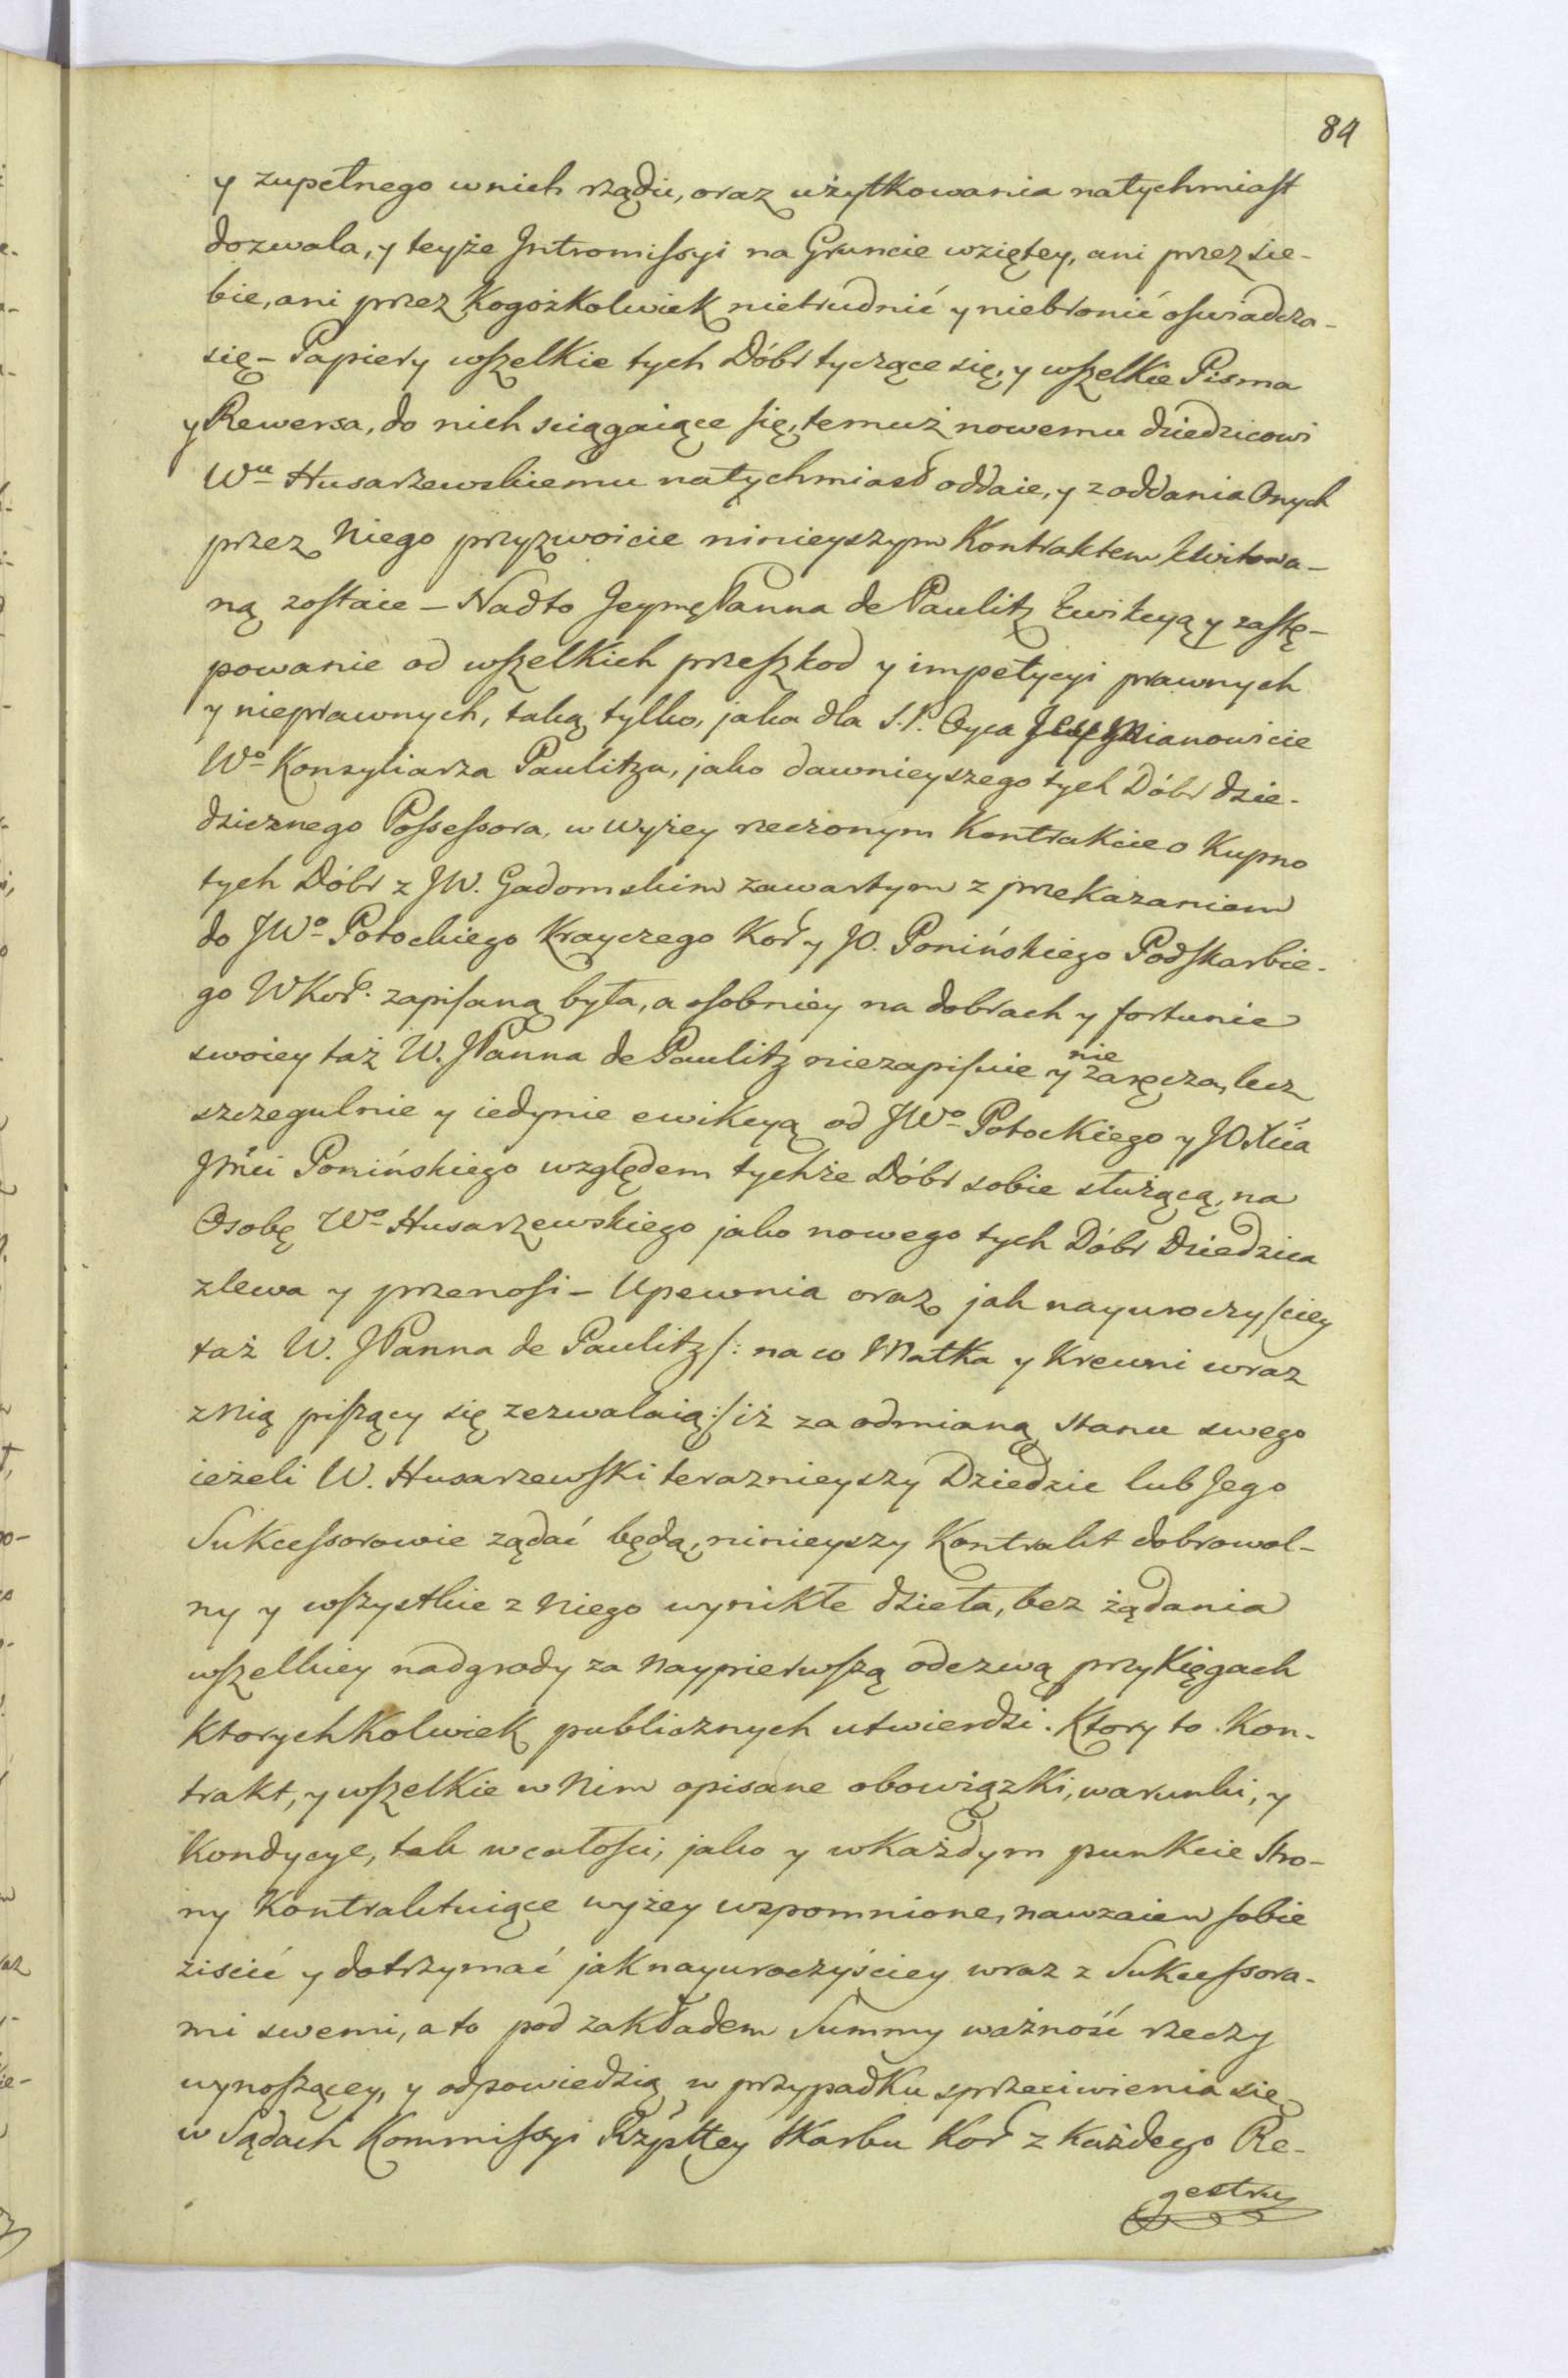 84
y zupełnego wnich rządu, oraz użytkowania natychmiast
dozwala, y teyże Intromissyi na Gruncie wziętey, ani przez sie-
bie, ani przez kogożkolwiek nietrudnić y niebronić oswiadcza-
się – Papiery wszelkie tych Dóbr tyczące się, y wszelkie Pisma
y Rewersa, do nich sciągaiące się, temuż nowemu dziedzicowi
Wu Husarzewskiemu natychmiast oddaie, y z oddania Onych
przez Niego przyzwoicie ninieyszym Kontraktem kwitowa-
ną zostaie – Nadto Jeymę Panna de Paulitz Ewikcyą y zastę-
powanie od wszelkich przeszkod y impetycyi prawnych
y nieprawnych, taką tylko, jaka dla S. P. Oyca mianowicie
Wo Konsyliarza Paulitza, jako dawnieyszego tych Dóbr dzie-
dzicznego Possessora, w wyżey rzeczonym Kontrakcie o Kupno
tych Dóbr z JW. Gadomskim zawartym z przekazaniem
do JWo Potockiego Krayczego Kor y JO. Ponińskiego Podskarbie-
go WKor. zapisaną była, a osobniey na dobrach y fortunie
swoiey taż W. JPanna de Paulitz niezapisuie y nie zaręcza, lecz
szczegulnie y iedynie ewikcyą od JWo Potockiego y JO Xcia
Jmci Ponińskiego względem tychże Dóbr sobie służącą, na
Osobę Wo Husarzewskiego jako nowego tych Dóbr Dziedzica
zlewa y przenosi – Upewnia oraz jak nayuroczyściey
taż W. JPanna de Paulitz /: na co Matka y Krewni wraz
z Nią piszący się zezwalaią :/ iż za odmianą stanu swego
ieżeli W. Husarzewski teraznieyszy Dziedzic lub Jego
Sukcessorowie ządać będą, ninieyszy Kontrakt dobrowol-
ny y wszystkie z Niego wynikłe dzieła, bez żądania
wszelkiey nadgrody za naypierwszą odezwą przy Xięgach
ktorychkolwiek publicznych utwierdzi. Ktory to Kon-
trakt, y wszelkie w Nim opisane obowiązki, warunki, y
kondycye, tak wcałości, jako y wkażdym punkcie Stro-
ny Kontraktuiące wyżey wspomnione, nawzaiem sobie
ziscić y dotrzymać jak nayuroczyściey wraz z Sukcessora-
mi swemi, a to pod zakładem Summy ważność rzeczy
wynoszącey, y odpowiedzią w przypadku sprzeciwienia się
w Sądach Kommissyi Rzpltey Skarbu Kor z każdego Re-
gestru